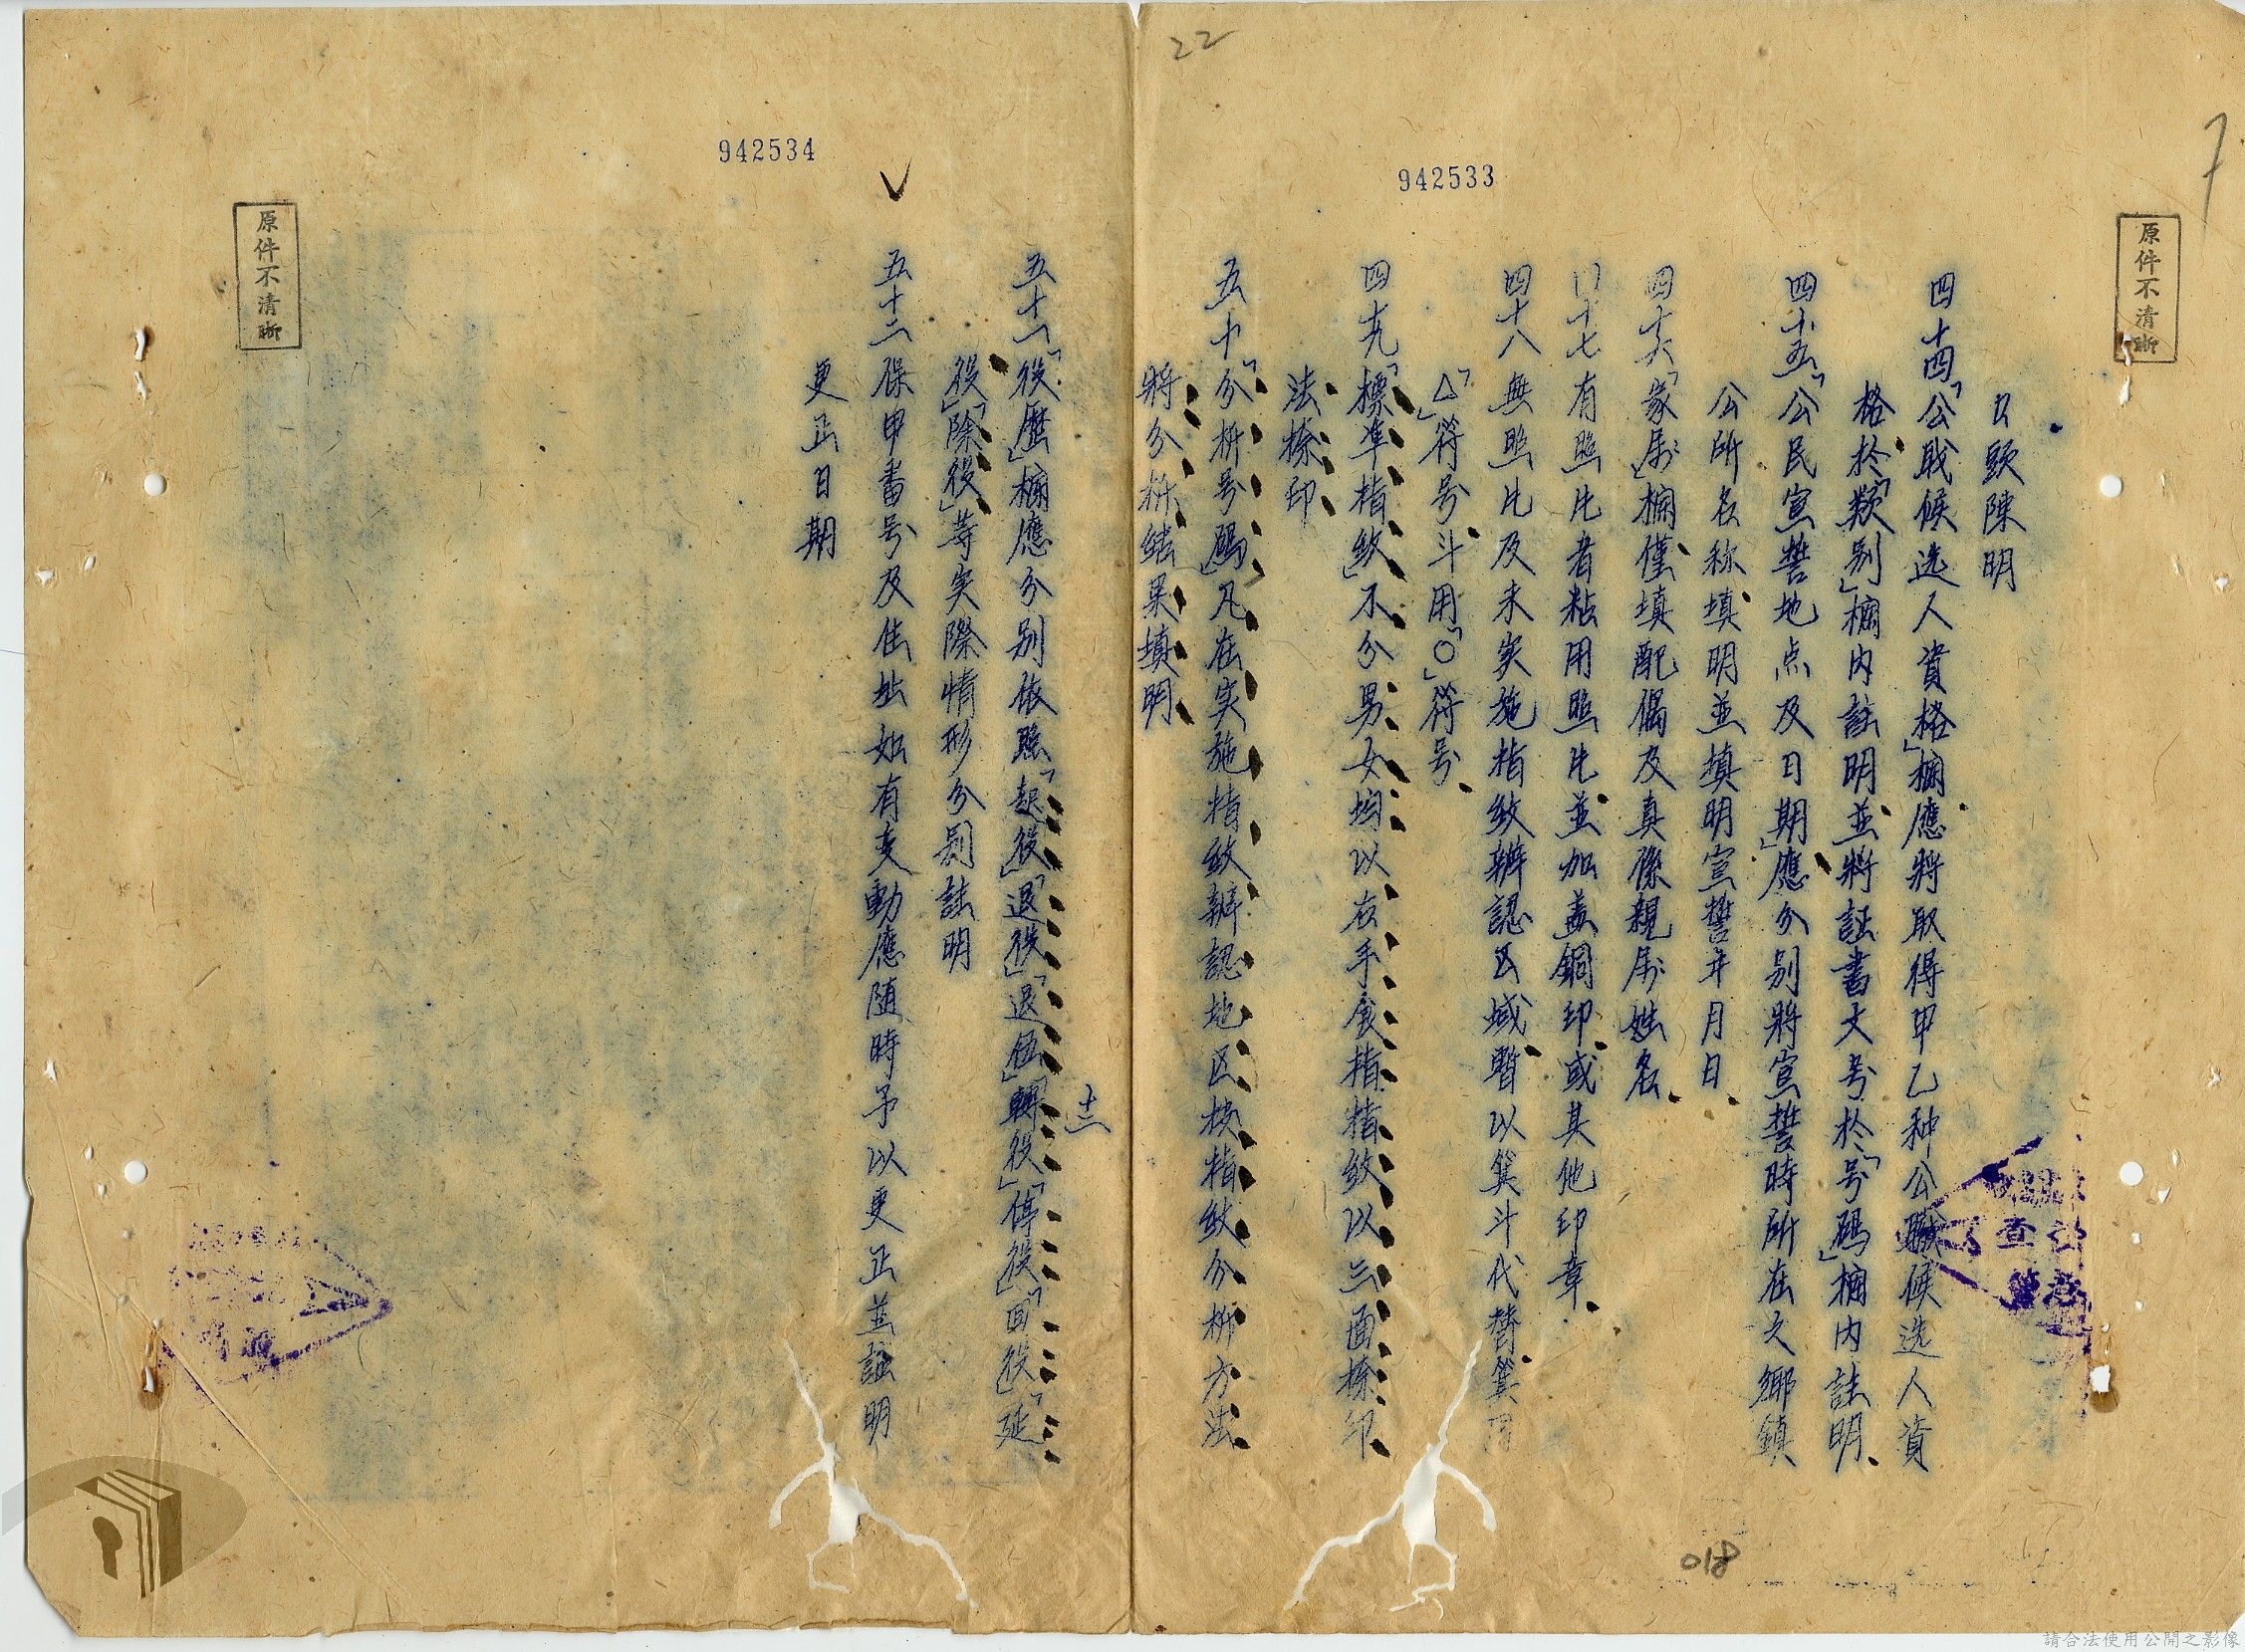 22
942533
原件不清晰
口頭陳明
四十四「公职候选人資格」欄應將取得甲乙种公職候选人資
格於「類别」欄内註明並將証書文号於「号碼」欄内註明
四十五「公民宣誓地点及日期」應分别將宣誓時所在之鄉鎮
公所名称填明並填明宣誓年月日
四十六「家屬」欄僅填配偶及真係親屬姓名
四十七有照片者粘用照片並加蓋鋼印或其他印章
四十八無照片及未实施指紋辨認区域暫以箕斗代替箕用
「△」符号斗用「○」符号
四十九「標準指紋」不分男女均以右手食指指紋以三面捺印
法捺印
五十「分析号碼」凡在实施指紋辨認地区按指紋分析方法
將分析結果填明
018
942534
原件不清晰
十二
五十一「役歷」欄應分别依照「起役」「退役」「退伍」「轉役」「停役」「回役」「延
役」「除役」等实際情形分别註明
五十二保甲番号及住址如有变動應随時予以更正並註明
更正日期
請合法使用公開之影像